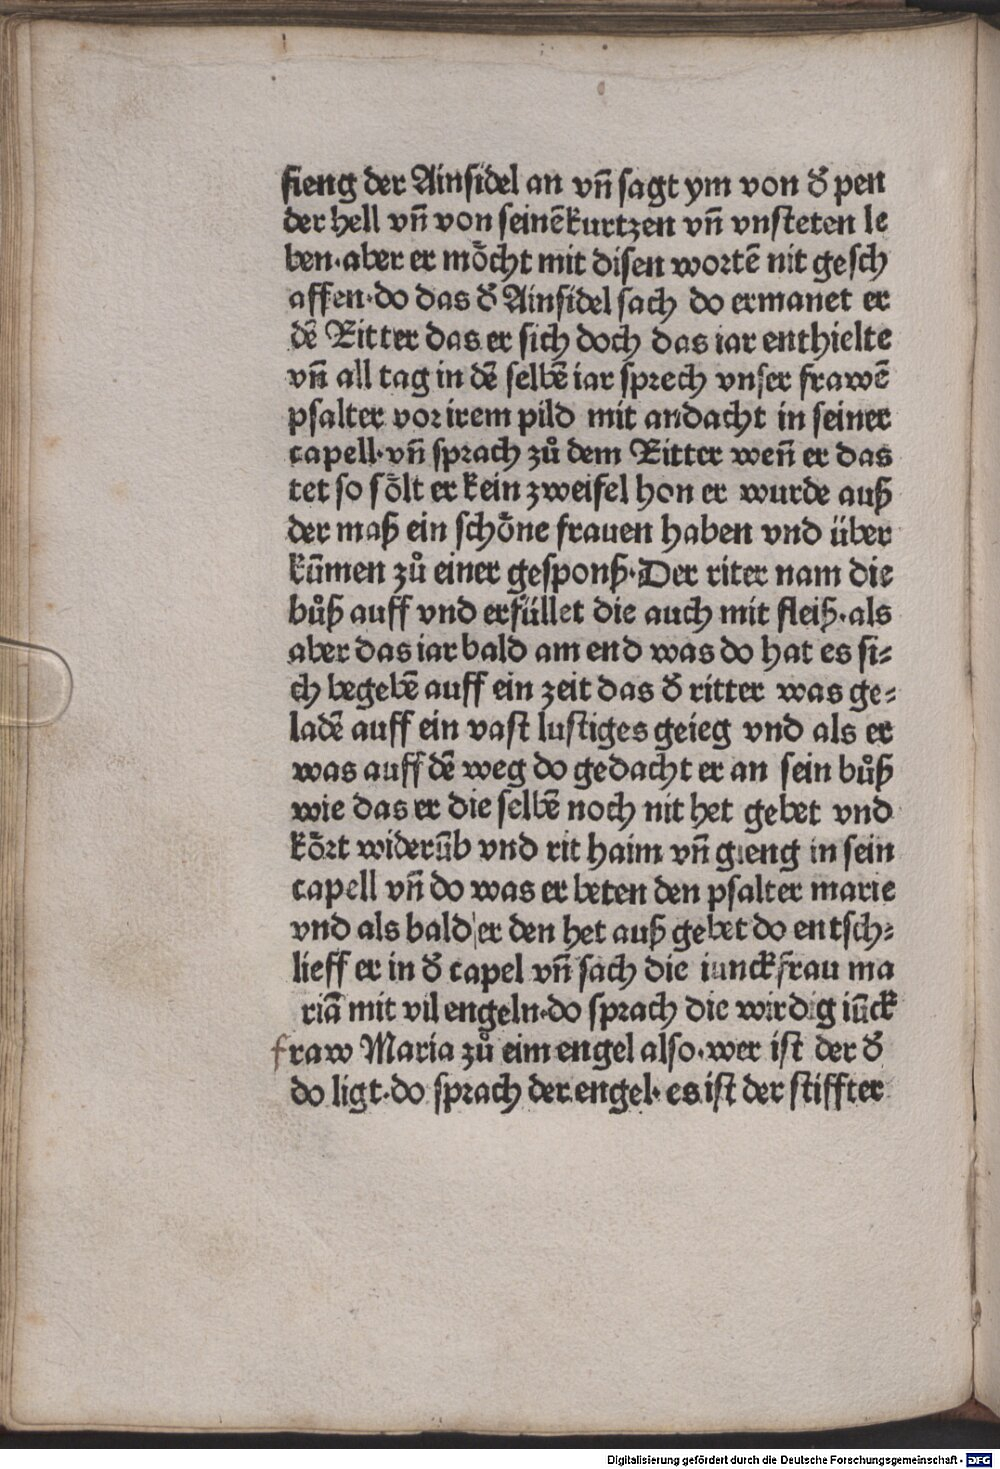 fieng der Ainsidel an vñ sagt ym von d̕ pen
der hell vñ von seinē kurtzen vñ vnsteten le
ben·aber er moͤcht mit disen wortē nit gesch
affen·do das d̕ Ainsidel sach do ermanet er
dē Ritter das er sich doch das iar enthielte
vñ all tag in dē selbē iar sprech vnser frawē
psalter vor irem pild mit andacht in seiner
capell·vñ sprach zuͦ dem Ritter weñ er das
tet so soͤlt er kein zweifel hon er wurde auß
der maß ein schoͤne frauen haben vnd über
kūmen zuͦ einer gesponß·Der riter nam die
buͦß auff vnd erfüllet die auch mit fleiß·als
aber das iar bald am end was do hat es si⸗
ch begebē auff ein zeit das d̕ ritter was ge⸗
ladē auff ein vast lustiges geieg vnd als er
was auff dē weg do gedacht er an sein buͦß
wie das er die selbē noch nit het gebet vnd
koͤrt widerūb vnd rit haim vñ gieng in sein
capell vñ do was er beten den psalter marie
vnd als bald er den het auß gebet do entsch⸗
lieff er in d̕ capel vñ sach die iunckfrau ma
riā mit vil engeln·do sprach die wirdig iūck
fraw Maria zuͦ eim engel also·wer ist der d̕
do ligt·do sprach der engel·es ist der stiffter
Digitalisierung gefördert durch die Deutsche Forschungsgemeinschaft - DFG